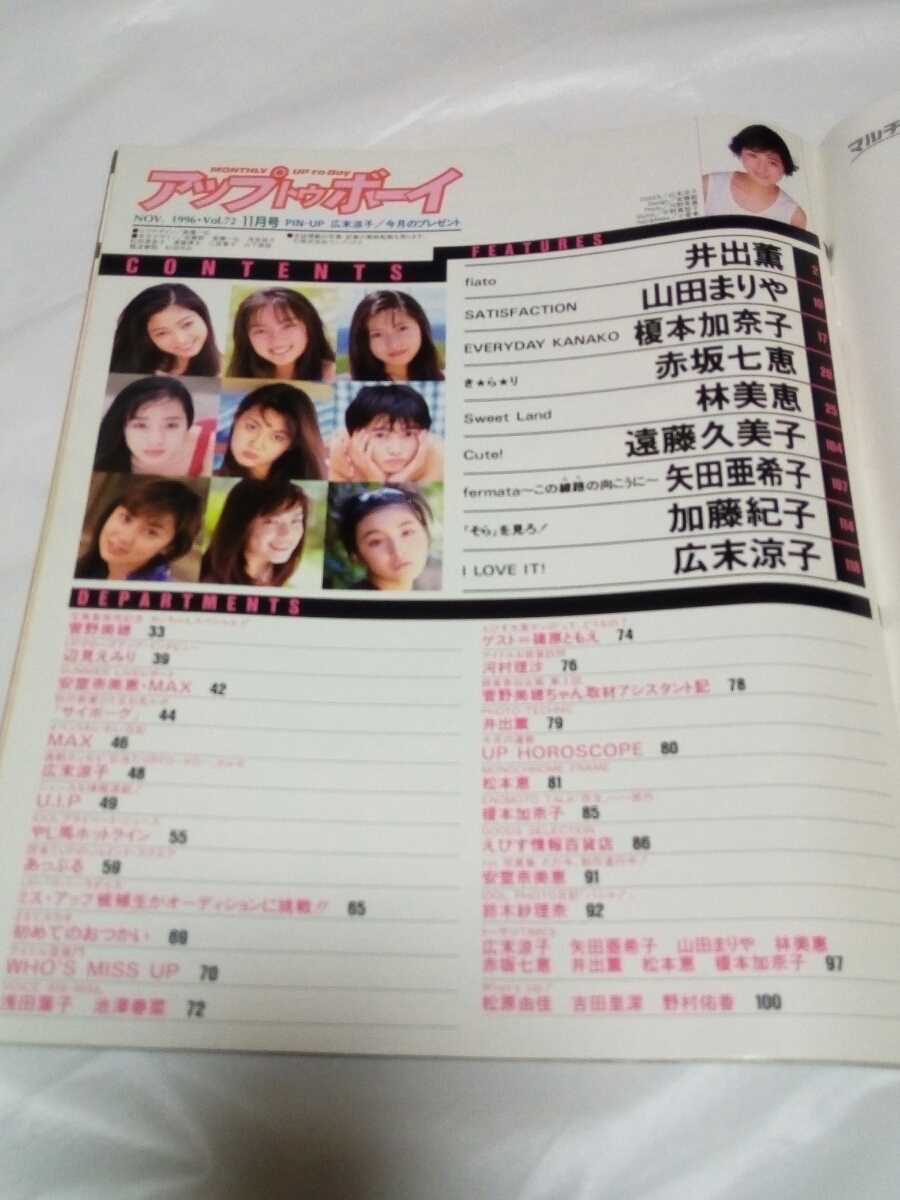 MONTHLY UP to Boy
アップトゥボーイ
NOV. 1996・Vol.72 11月号 PIN-UP 広末涼子/今月のプレゼント
マルチ
CONTENTS
FEATURES
fiato 井出薫
SATISFACTION 山田まりや
EVERYDAY KANAKO 榎本加奈子 17
き★ら★り 赤坂七恵
Sweet Land 林美恵 25
Cute! 遠藤久美子 104
fermata〜この線路の向こうに〜 矢田亜希子 107
「そら」を見ろ! 加藤紀子 114
I LOVE IT! 広末涼子
DEPARTMENTS
菅野美穂 33
辺見えみり 39
安室奈美恵・MAX 42
「サイボーグ」 44
MAX 46
広末涼子 48
U.I.P 49
やじ馬ホットライン 55
あっぷる 59
ミス・アップ候補生がオーディションに挑戦!! 65
初めてのおつかい 69
WHO'S MISS UP 70
浅田葉子 池澤春菜 72
ゲスト=篠原ともえ 74
河村理沙 76
菅野美穂ちゃん取材アシスタント記 78
PHOTO-TECHNIC
井出薫 79
今月の運勢
UP HOROSCOPE 80
MONOCHROME FRAME
松本恵 81
榎本加奈子 85
GOODS SELECTION
えびす情報百貨店 86
安室奈美恵 91
鈴木紗理奈 92
広末涼子 矢田亜希子 山田まりや 林美恵
赤坂七恵 井出薫 松本恵 榎本加奈子 97
松原由佳 吉田里深 野村佑香 100